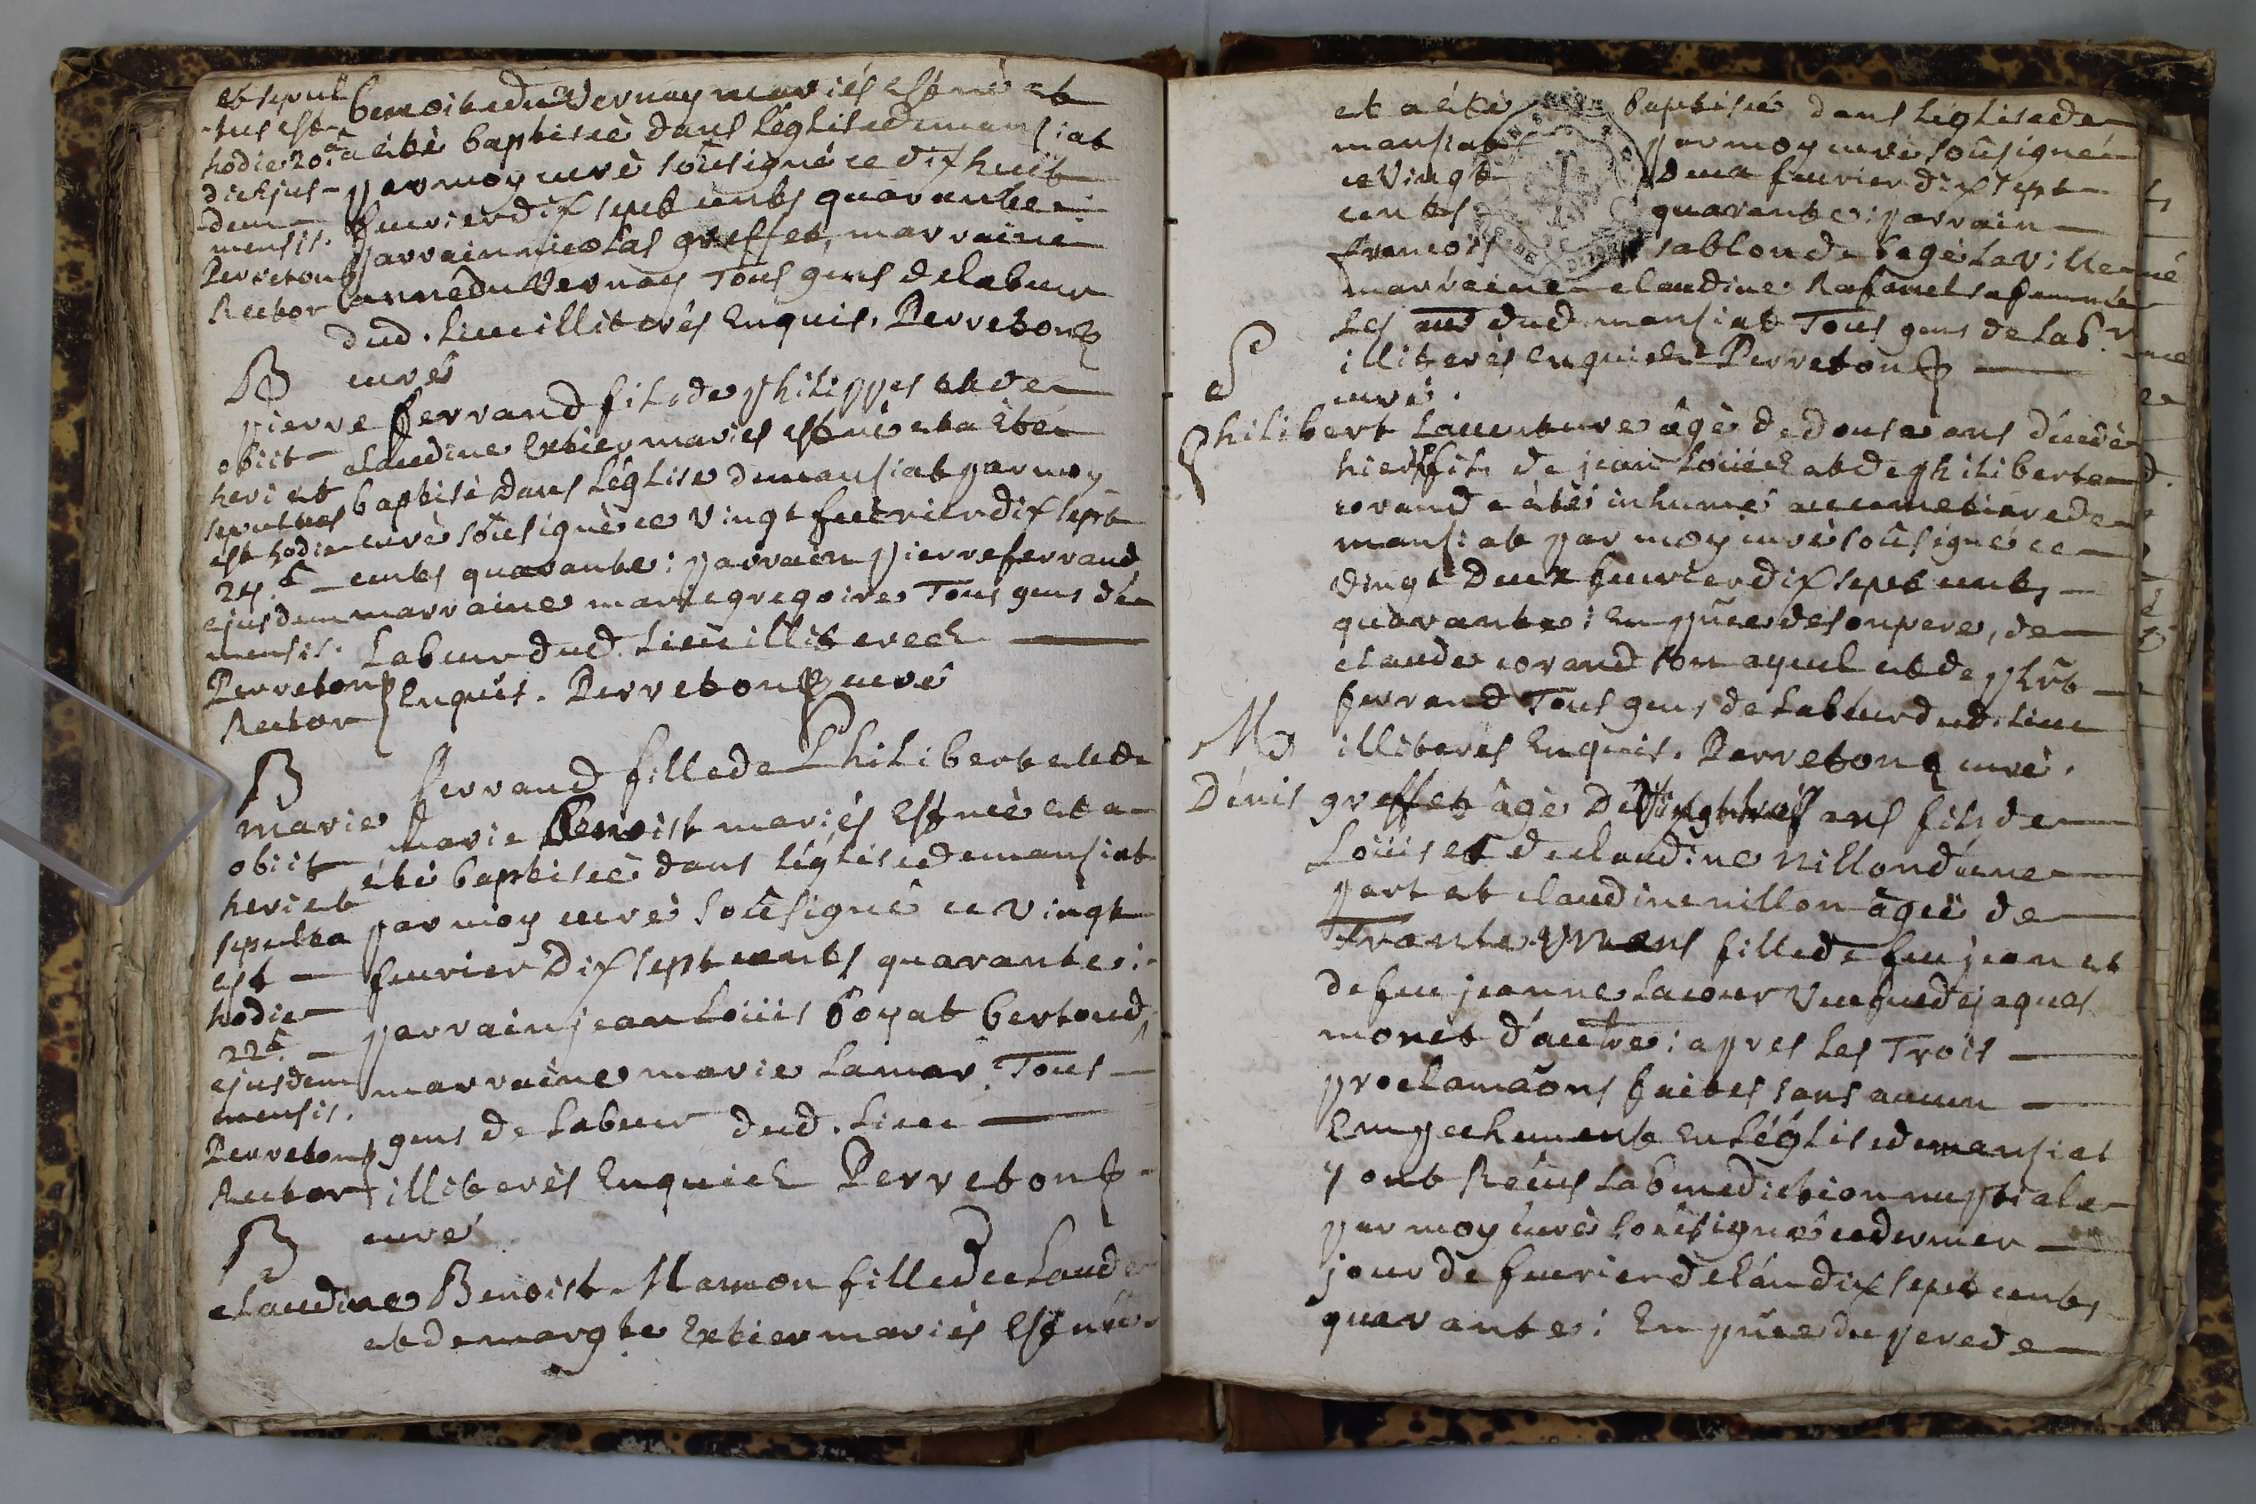 et sepul
-tus est
hodie 20.a
die ejus-
-dem
mensis.
Perreton
Rector
benoite du Vernay mariés est né et
a été baptisée dans l'église de mansiat
par moy curé soûsigné ce dix huit
fevrier dix sept cents quarante :
parrain nicolas greffet, marraine
anne du Vernay Tous gens de labeur
dud. lieu illiterés Enquis. Perreton
curé
B
pierre ferrand fils de philippes et de
claudine Extier mariés est né et a été
baptisé dans l'église de mansiat par moy
curé soûsigné ce vingt fevrier dix sept
cents quarante : parrain pierre ferrand
marraine marie gregoire Tous gens de
labeur dud. lieu illiterech
Enquis. Perreton curé
obiit
heri et
sepultus
est hodie
24.a
ejusdem
mensis.
Perreton
Rector
B
marie ferrand fille de Philibert et de
marie Benoist mariés est née et a
été baptisée dans l'église de mansiat
par moy curé soûsigné ce vingt
fevrier dix sept cents quarante :
parrain jean loüis boyat bertoud,
marraine marie lamar. Tous
gens de labeur dud. lieu
illiterés Enquich Perreton
curé
obiit
heri et
sepulta
est
hodie
22.a
ejusdem
mensis.
Perreton
Rector
B
claudine Benoist-Mamon fille de claude
et de margte Extier mariés est née
et a été baptisée dans l'église de
mansiat par moy curé soûsigné
ce vingt deux fevrier dix sept
cents quarante : parrain
francois sablon de bagé la ville
marraine claudine Rafanel sa femme
les dud. mansiat Tous gens de lab.r
illiterés enquich Perreton
curé.
S
Philibert laventure âgé de douse ans décédé
hier fils de jean loüich et de philiberte
corand a été inhumé au cimetière de
mansiat par moy curé soûsigné ce
vingt deux fevrier dix sept cents
quarante : En pñce de son pere, de
claude corand son ayeul et de phlbt
ferrand Tous gens de labeur dud. lieu
illiterés Enquis. Perreton curé.
M
Dénis greffet âgé de vingt trois ans fils de
Loüis et de claudine Nillon d'une
part et claudine nillon âgée de
Trante ans fille de feu jean et
de feu jeanne lacour veufue de jaques
monet d'autre : apres les Trois
proclamãons faites sans aucun
Empechement En l'église de mansiat
y ont Réçus la benediction nuptiale
par moy curé soûsigné ce dernier
jour de fevrier de l'an dix sept cents
quarante : En pñce du pere de